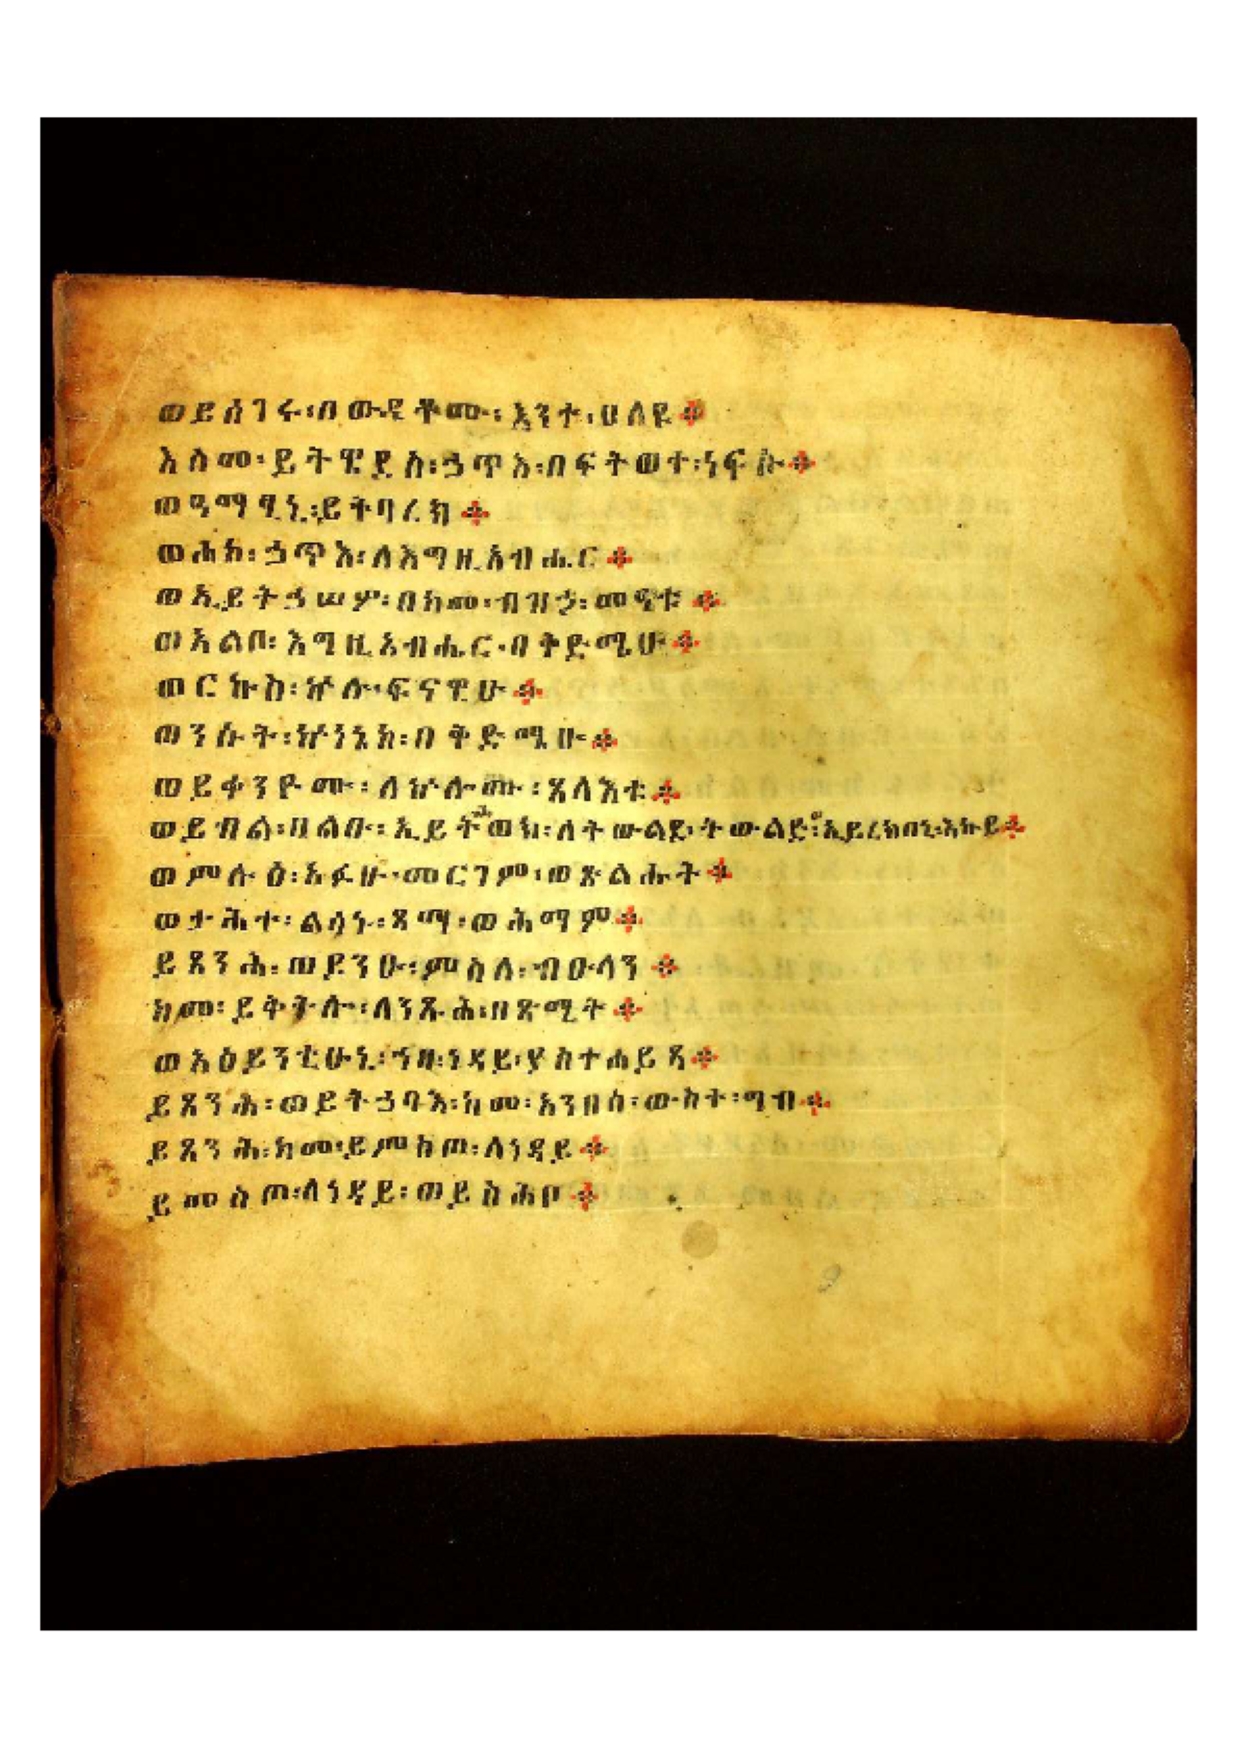 ወይሰገሩ፡በውዲቶሙ፡እንተ፡ሀለዩ።
እስመ፡ይትዌደስ፡ኃጥእ፡በፍትወተ፡ነፍሱ።
ወዓማፂኒ፡ይትባረክ።
ወሐከ፡ኃጥእ፡ለእግዚአብሔር።
ወኢይትኃሠሥ፡በከመ፡ብዝኃ፡መዓቱ።
ወአልቦ፡እግዚአብሔር፡በቅድሜሁ።
ወርኩስ፡ኵሉ፡ፍናዊሁ።
ወንሱት፡ኵነኔከ፡በቅድሜሁ።
ወይቀንዮሙ፡ለኵሎሙ፡ጸላእቱ።
ወይብል፡በልቡ፡ኢይትሀወክ፡ለትውልደ፡ትውልድ፡ኢይረክበኒ፡እኩይ።
ወምሉዕ፡አፉሁ፡መርገም፡ወጽልሑት።
ወታሕተ፡ልሳኑ፡ጻማ፡ወሕማም።
ይጸንሕ፡ወይንዑ፡ምስለ፡ብዑላን።
ከመ፡ይቅትሎ፡ለንጹሕ፡በጽሚት።
ወአዕይንቲሁኒ፡ኀበ፡ነዳይ፡ያስተሐይጻ።
ይጸንሕ፡ወይትኃባእ፡ከመ፡አንበሳ፡ውስተ፡ግብ።
ይጸንሕ፡ከመ፡ይምስጦ፡ለነዳይ።
ይመስጦ፡ለነዳይ፡ወይስሕቦ።